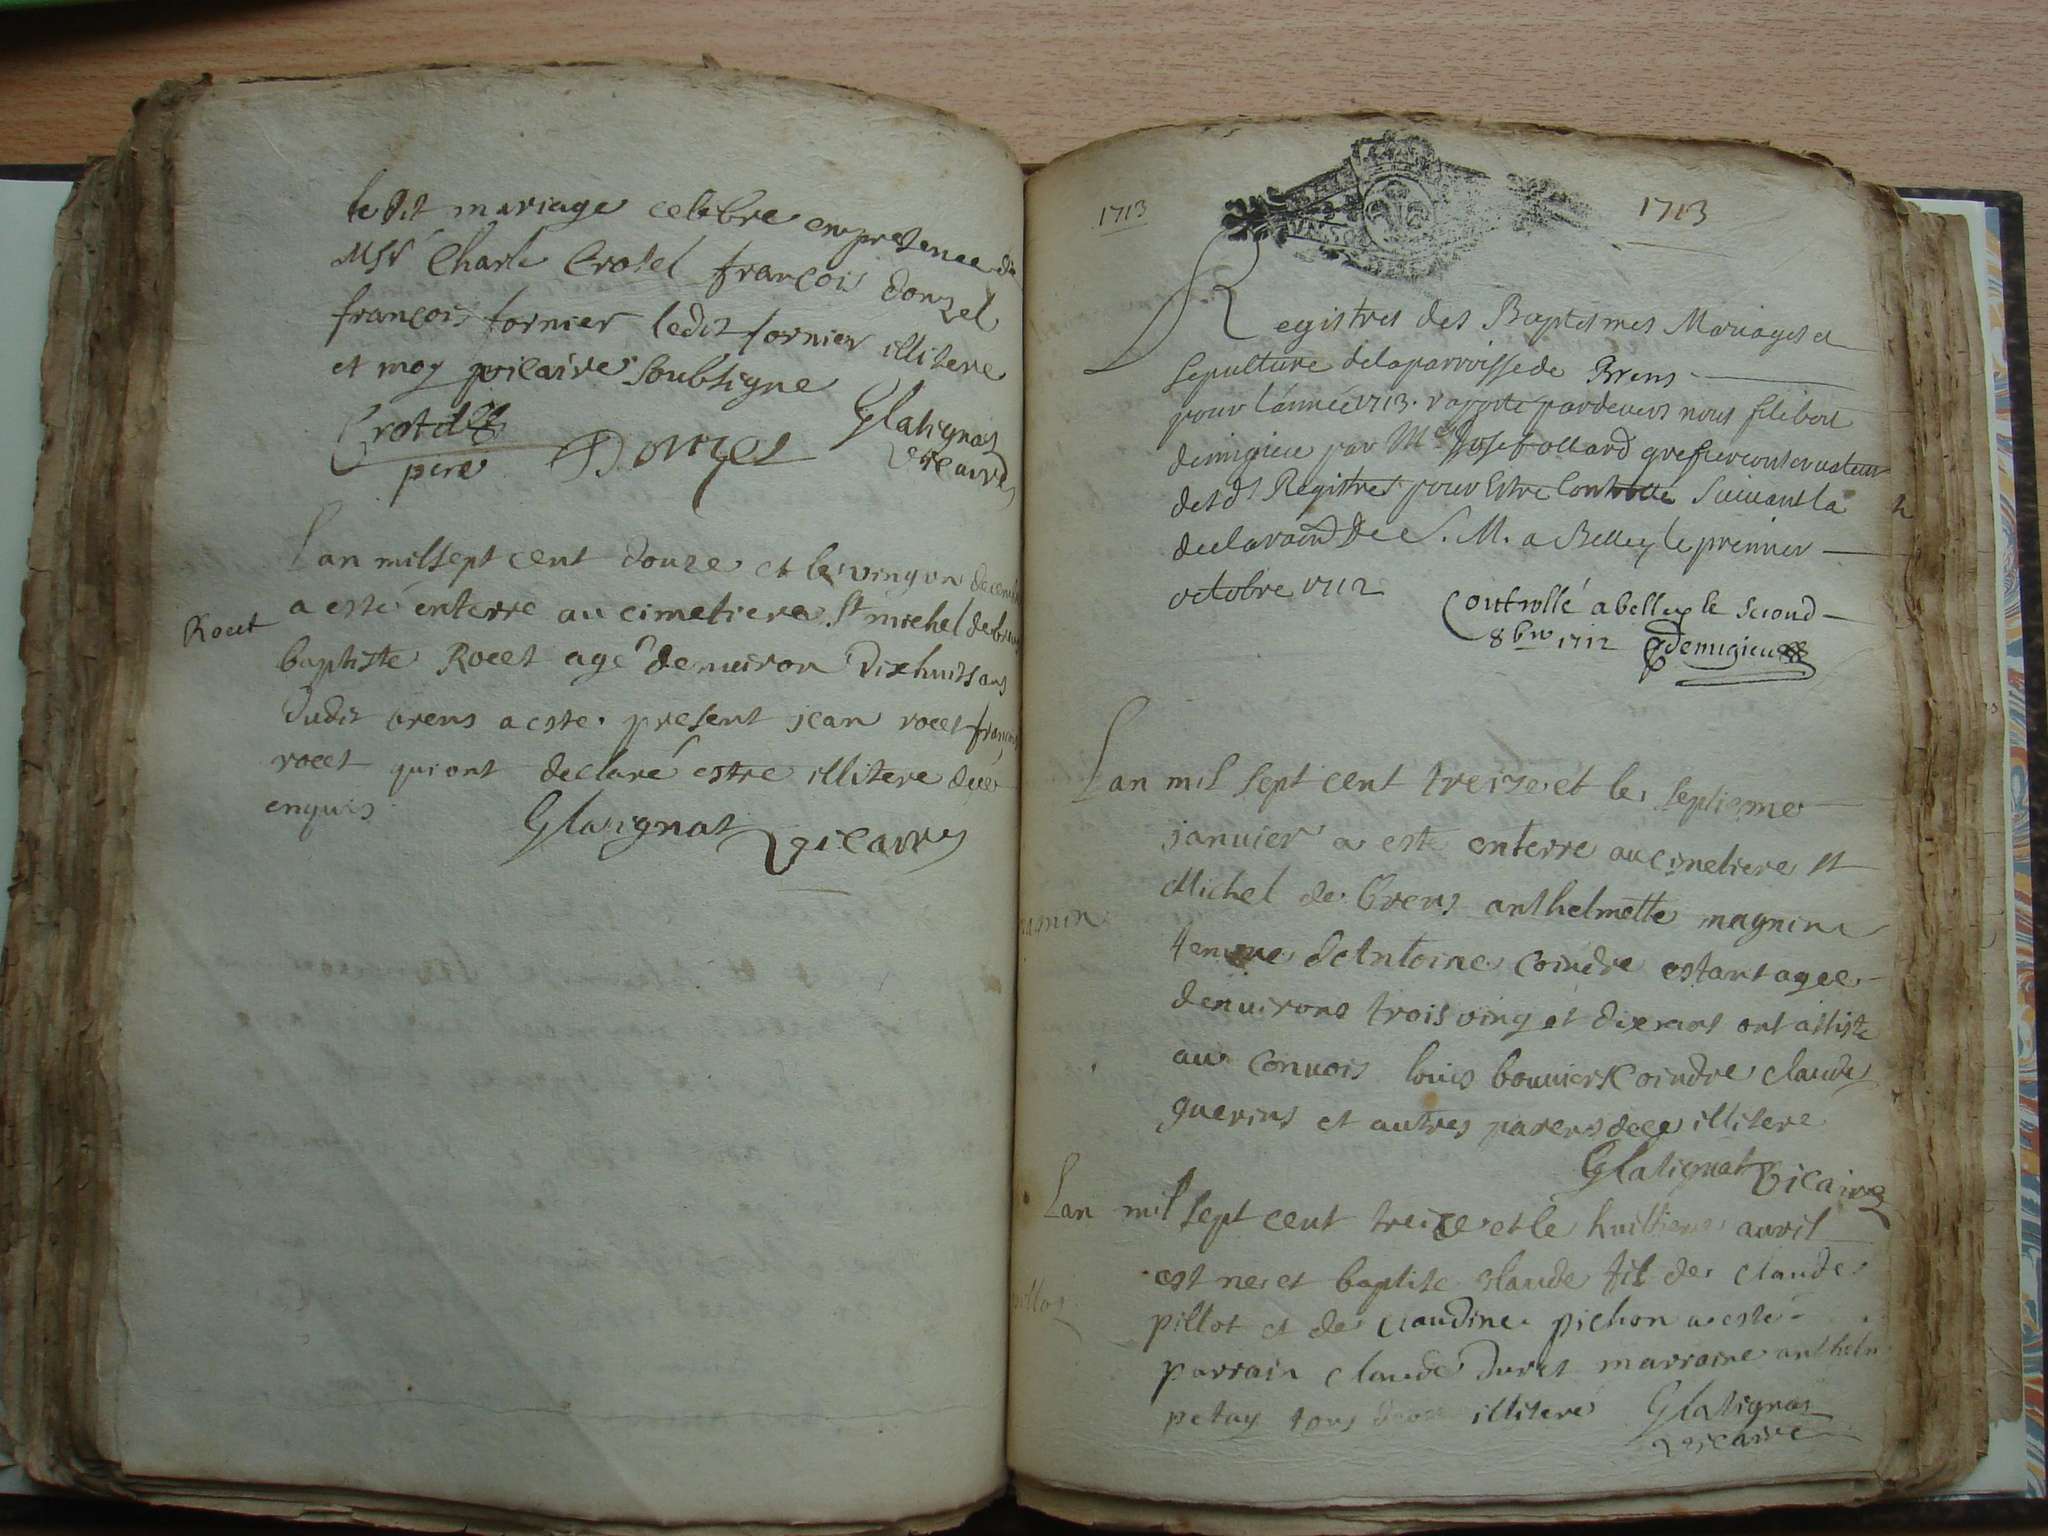 ledit mariage celebre en presence de
Msr Charle Crotel françois donzel
françois fornier ledit fornier illitere
et moy vicaire soubsigne
Crotel
pere Donzel Glatignat
vicaire
Lan mil sept cent douze et le vingun decemb
a esté enterre au cimetiere St michel de brens
Rocet
baptiste Rocet agé denuiron dix huit ans
dudit brens a este present jean rocet françois
rocet qui ont declaré estre illitere due
enquis
Glatignat vicaire
1713 1713
Registres des Baptesmes Mariages et
sepulture dela parroisse de Brens
pour lannée 1713. raporté pardevers nous
demigieu par Me Josef ollard grefier conservateur
desds Registres pour Estre Controllé suiuant la
declaraōn De S. M. a Belley le premier
octobre 1712
Controllé a belley le second
8bre 1712 demigieu
Lan mil sept cent treize et le septieme
januier a esté enterre au cimetiere st
Michel de brens anthelmette magnin
magnin
femme dentoine coindre estant agee
denuirons trois ving et dix ans ont assisté
au conuois louis bouuier coindre claude
guerins et autres parens illitere
Glatignat vicaire
Lan mil sept cent treize et le huitieme auril
est ne et baptise claude fil de claude
pillot
pillot et de claudine pichon a este
parrain claude duret marraine anthelm
petuy tous deux illiteré Glatignat
vicaire